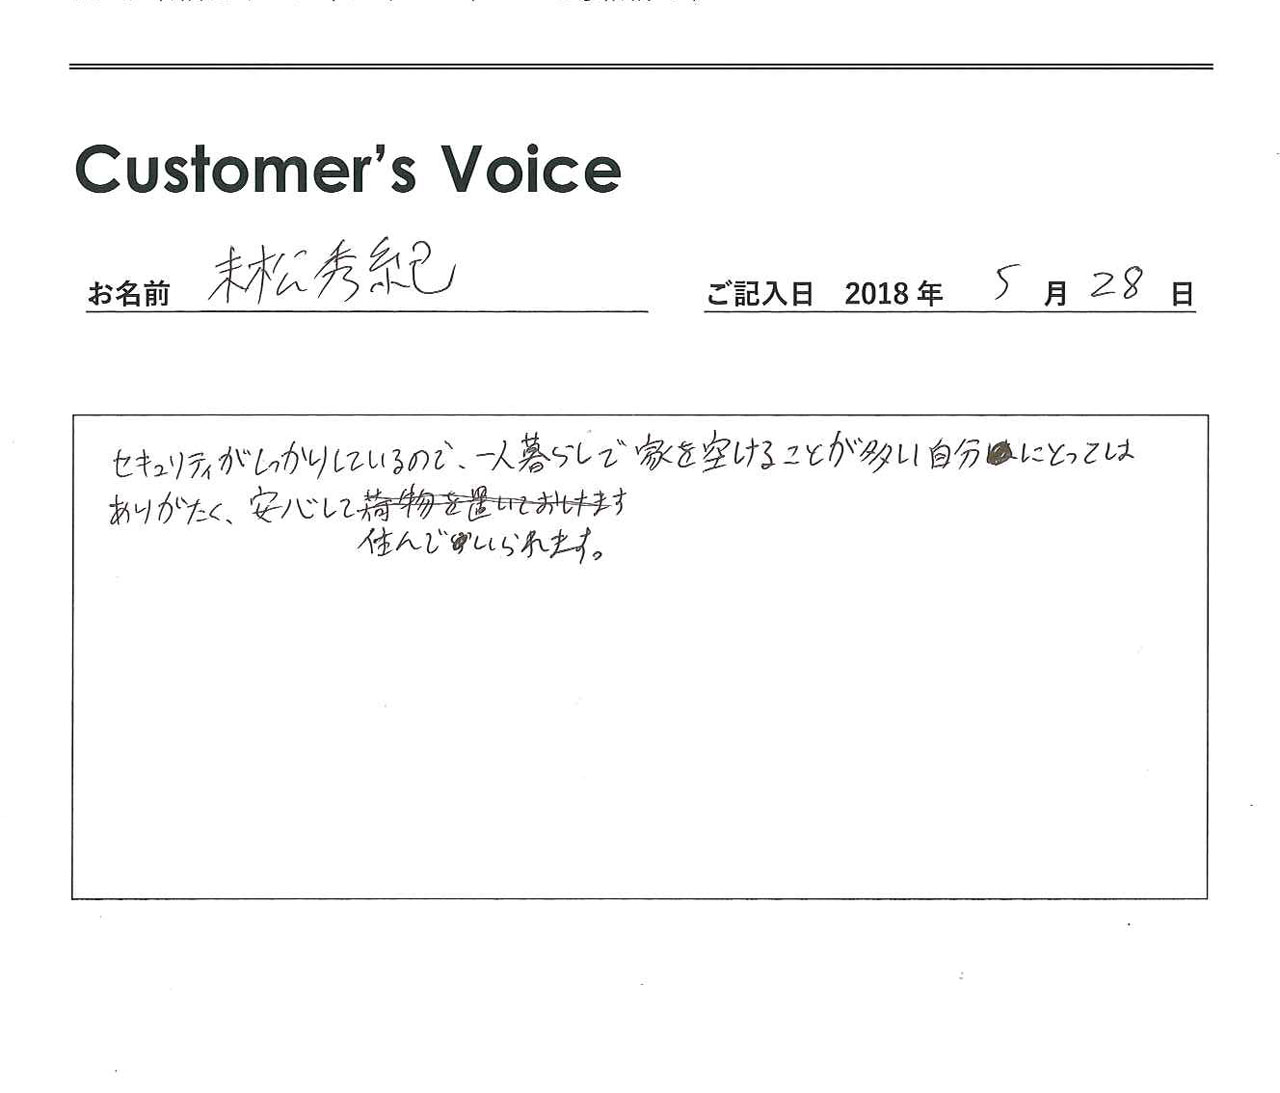 Customer's Voice
お名前 末松秀紀 ご記入日 2018年 5月28日
セキュリティがしっかりしているので、一人暮らしで家を空けることが多い自分にとっては
ありがたく、安心して荷物を置いておけます
住んでいられます。